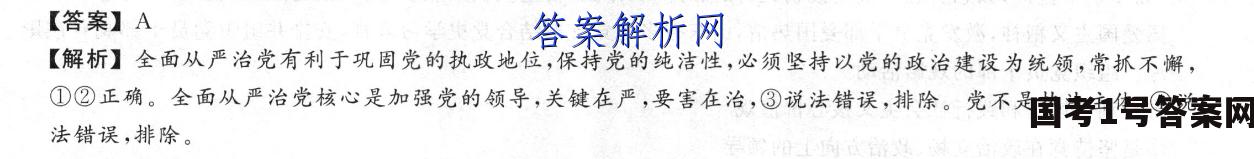 【答案】A
答案解析网
【解析】全面从严治党有利于巩固党的执政地位,保持党的纯洁性,必须坚持以党的政治建设为统领,常抓不懈,
①②正确。全面从严治党核心是加强党的领导,关键在严,要害在治,③说法错误,排除。党不是执法主体,④说
国考1号答案网
法错误,排除。